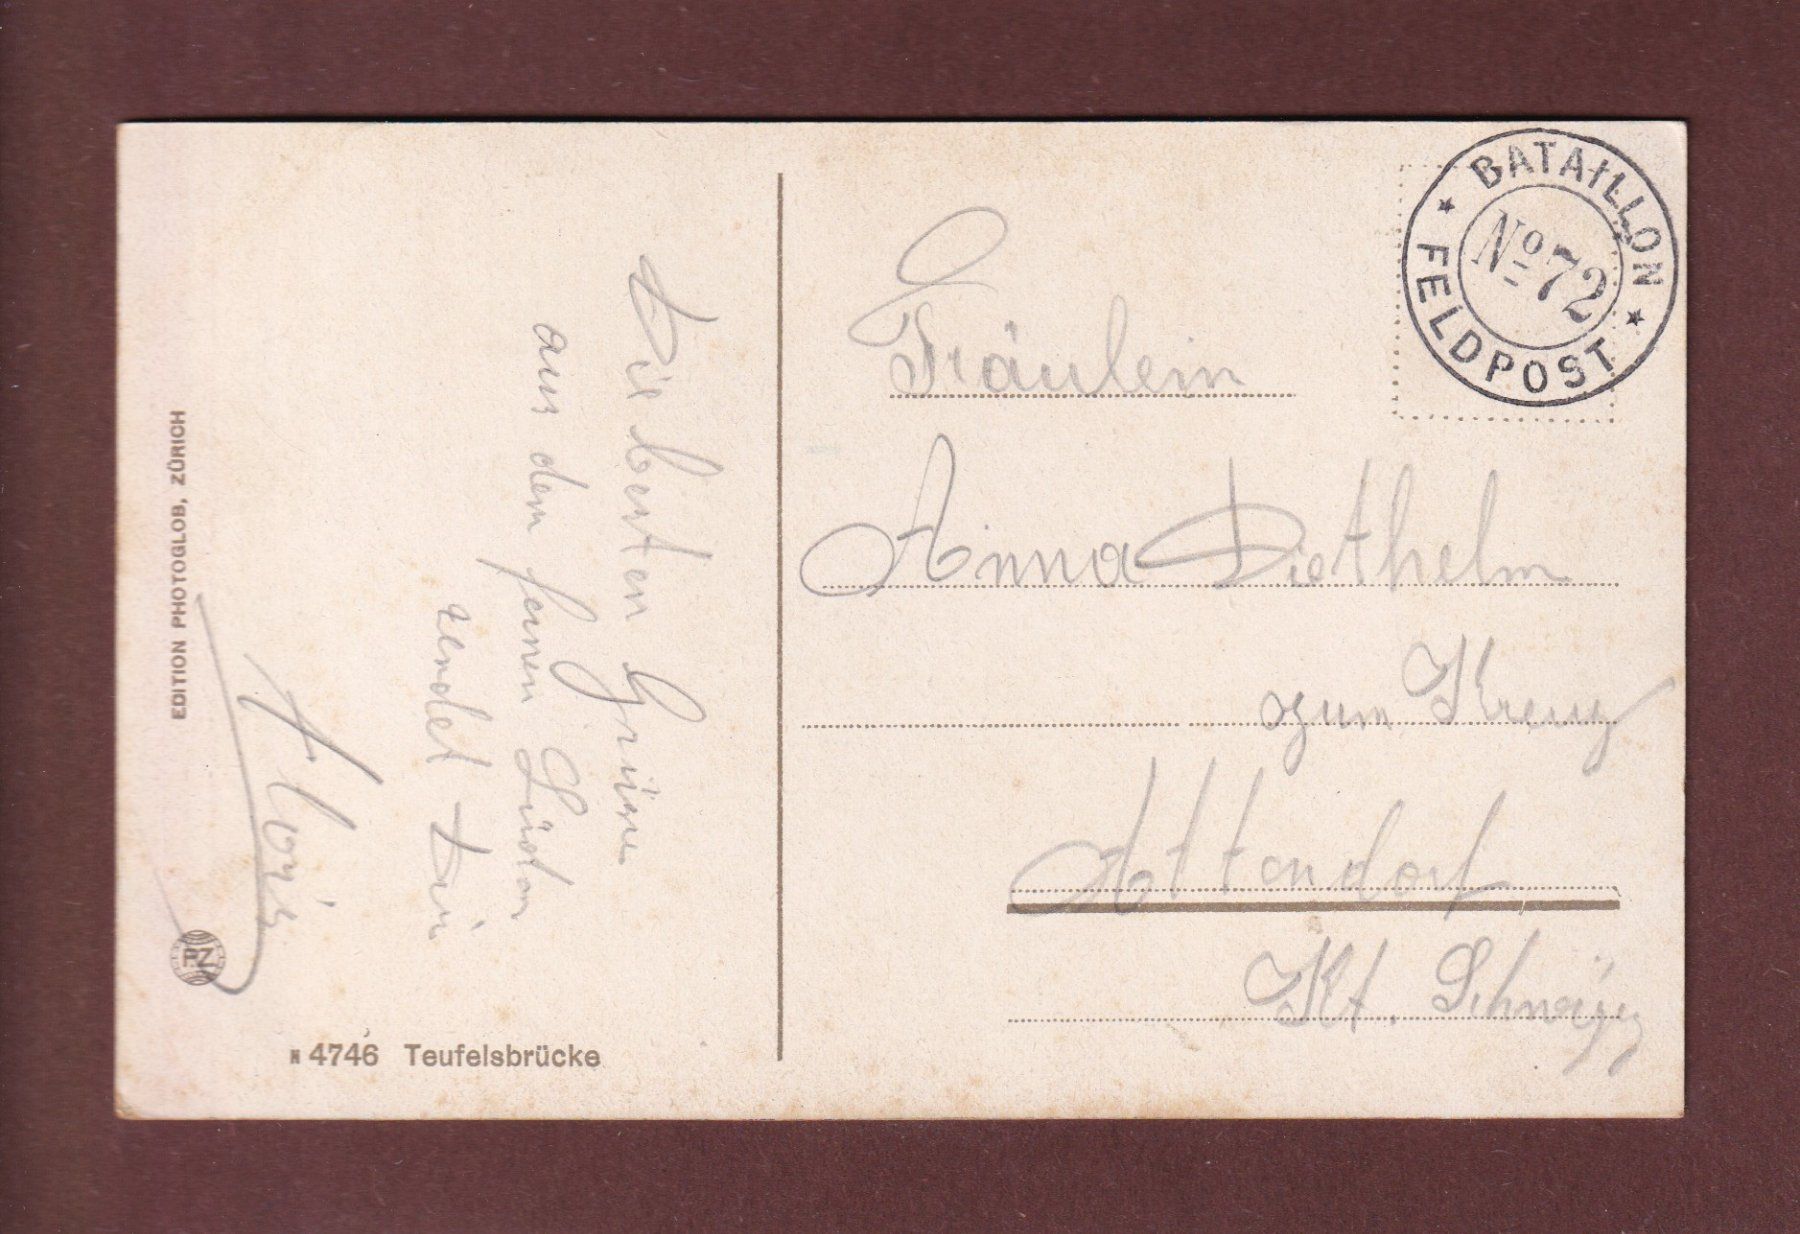 EDITION PHOTOGLOB, ZÜRICH
Die besten Grüsse
aus dem fernen Süden
sendet Dir
Alois
PZ
N 4746 Teufelsbrücke
BATAILLON
No 72
FELDPOST
Fräulein
Anna Diethelm
zum Kreuz
Altendorf
Kt. Schwÿz